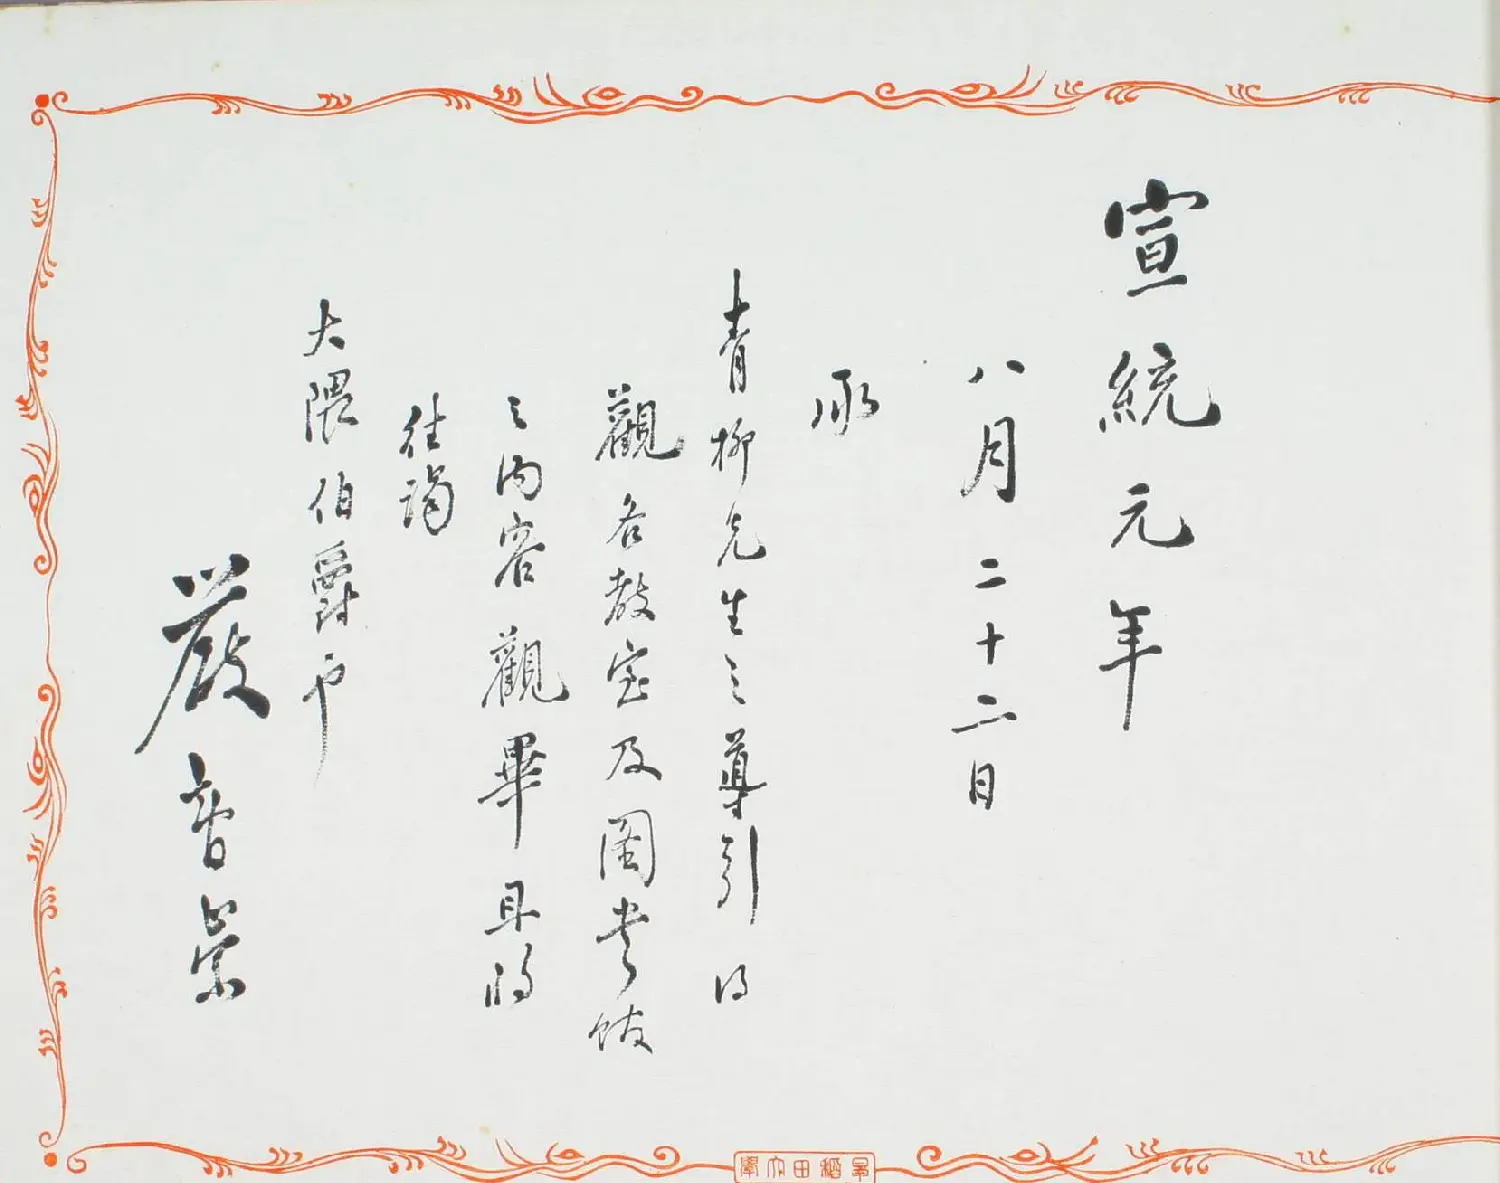 宣統元年
八月二十二日
承
青柳先生之導引得
觀各教室及圖書館
之內容觀畢且將
往謁
大隈伯爵也
嚴智崇
早稲田大學